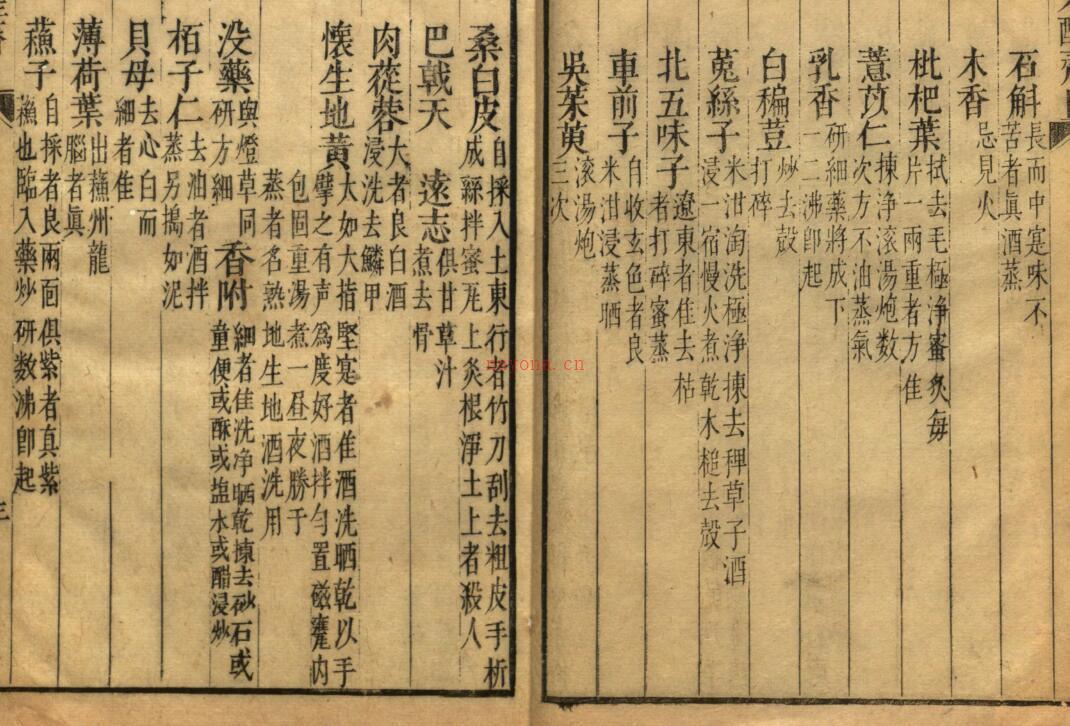 石斛 長而中寔味不苦者眞酒蒸
木香 忌見火
枇杷葉 拭去毛極淨蜜炙每片一兩重者方佳
薏苡仁 揀浄滚湯炮数次方不油蒸氣
乳香 研細藥將成下一二沸卽起
白稨荳 炒去殼打碎
菟絲子 米泔淘洗極淨揀去稗草子酒浸一宿慢火煮乾木槌去殼
北五味子 遼東者佳去枯者打碎蜜蒸
車前子 自收玄色者良米泔浸蒸晒
吳茱萸 滚湯炮三次
桑白皮 自採入土東行者竹刀刮去粗皮手析成絲拌蜜瓦上炙根淨土上者殺人
巴戟天 遠志 俱甘草汁煮去骨
肉蓯蓉 大者良白酒浸洗去鱗甲
懷生地黄 大如大指堅寔者佳酒洗晒乾以手擘之有声爲度好酒拌匀置磁甕内
包固重湯煮一昼夜勝于蒸者名熟地生地酒洗用
没藥 與燈草同研方細 香附 細者佳洗净晒乾揀去砂石或童便或酥或盐水或醋浸炒
栢子仁 去油者酒拌蒸另搗如泥
貝母 去心白而細者佳
薄荷葉 出蘓州龍腦者眞
蘓子 自採者良兩面俱紫者真紫蘓也臨入藥炒研数沸卽起
三
nayona.cn